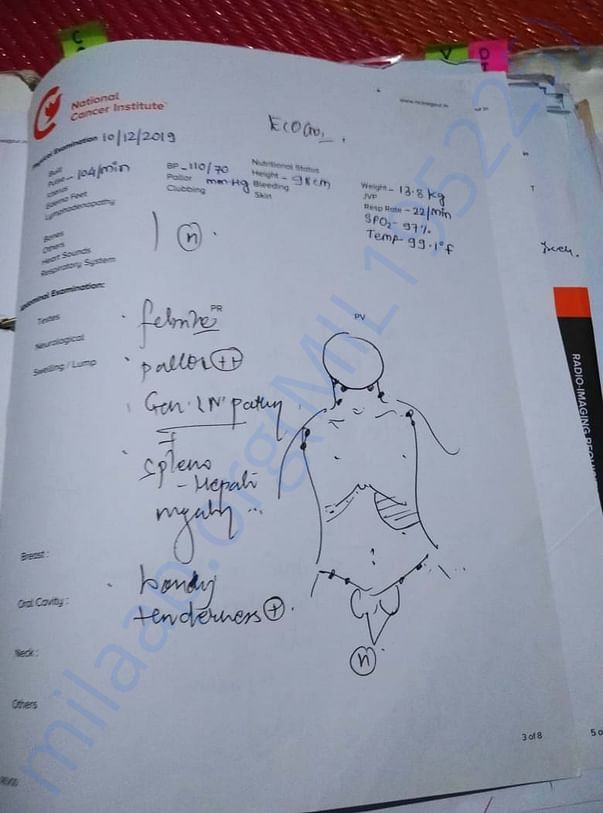 National
Cancer Institute
www.ncinagpur.in
ECOG
Physical Examination 10/12/2019
Built
Pulse - 104/min
Icterus
Edema Feet
Lymphadenopathy
BP - 110/70
mm Hg
Pallor
Clubbing
Nutritional Status
Height - 98 cm
Bleeding
Skin
Weight - 13.8 kg
JVP
Resp Rate - 22/min
SPO2 - 97%
Temp - 99.1°f
Bones
Others
Heart Sounds
Respiratory System
n
Abdominal Examination:
Testes
PR
PV
Neurological
Swelling / Lump
febrile
pallor ++
Gen. LN pathy
spleno
- Hepato
megaly
Breast :
bony
Oral Cavity :
tenderness +
n
Neck :
Others
3 of 8
5 o
RADIO-IMAGING REQUIS
milaap.org